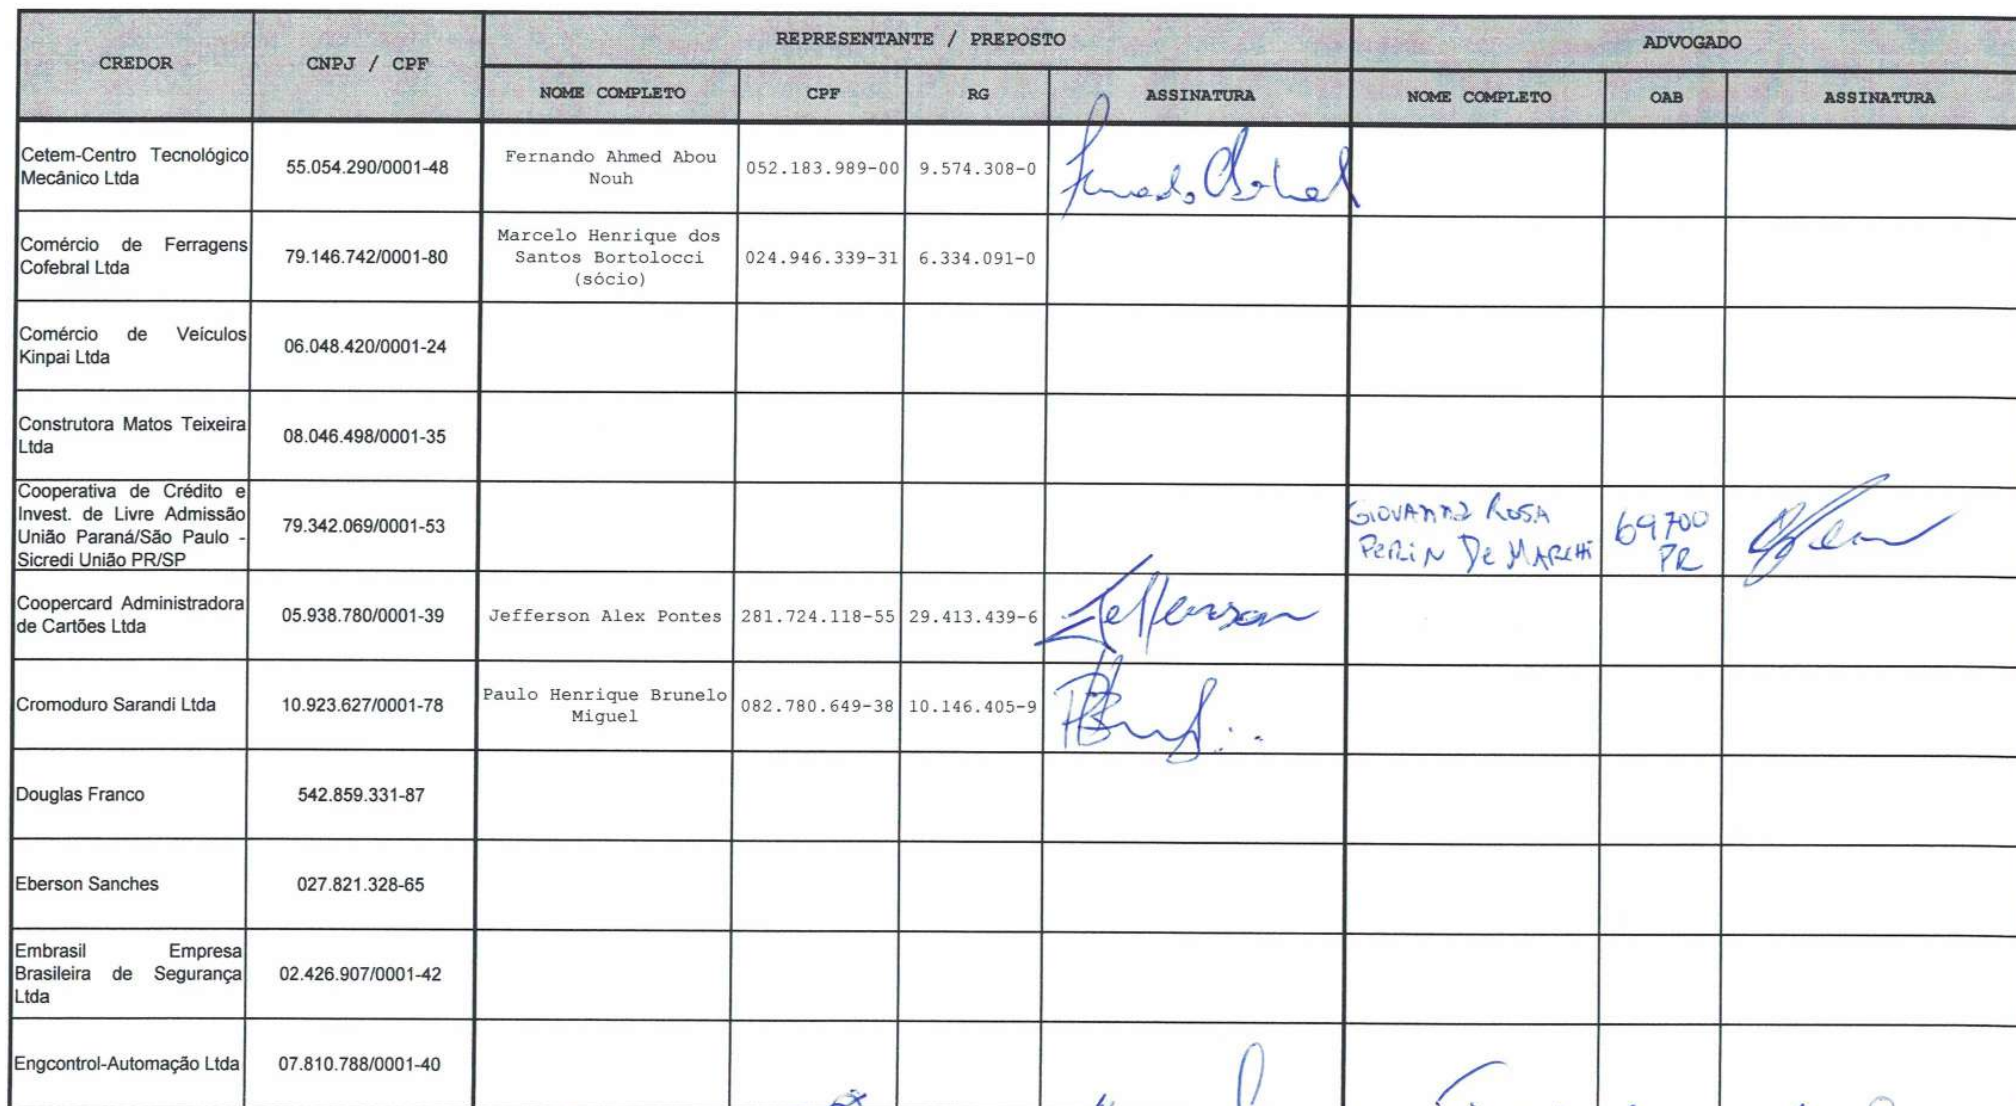 CREDOR
CNPJ / CPF
REPRESENTANTE / PREPOSTO
ADVOGADO
NOME COMPLETO
CPF
RG
ASSINATURA
NOME COMPLETO
OAB
ASSINATURA
Cetem-Centro Tecnológico
Mecânico Ltda
55.054.290/0001-48
Fernando Ahmed Abou
Nouh
052.183.989-00
9.574.308-0
Comércio de Ferragens
Cofebral Ltda
79.146.742/0001-80
Marcelo Henrique dos
Santos Bortolocci
(sócio)
024.946.339-31
6.334.091-0
Comércio de Veículos
Kinpai Ltda
06.048.420/0001-24
Construtora Matos Teixeira
Ltda
08.046.498/0001-35
Cooperativa de Crédito e
Invest. de Livre Admissão
União Paraná/São Paulo -
Sicredi União PR/SP
79.342.069/0001-53
GIOVANNA ROSA
PERIN DE MARCHI
69700
PR
Coopercard Administradora
de Cartões Ltda
05.938.780/0001-39
Jefferson Alex Pontes
281.724.118-55
29.413.439-6
Jefferson
Cromoduro Sarandi Ltda
10.923.627/0001-78
Paulo Henrique Brunelo
Miguel
082.780.649-38
10.146.405-9
Douglas Franco
542.859.331-87
Eberson Sanches
027.821.328-65
Embrasil Empresa
Brasileira de Segurança
Ltda
02.426.907/0001-42
Engcontrol-Automação Ltda
07.810.788/0001-40